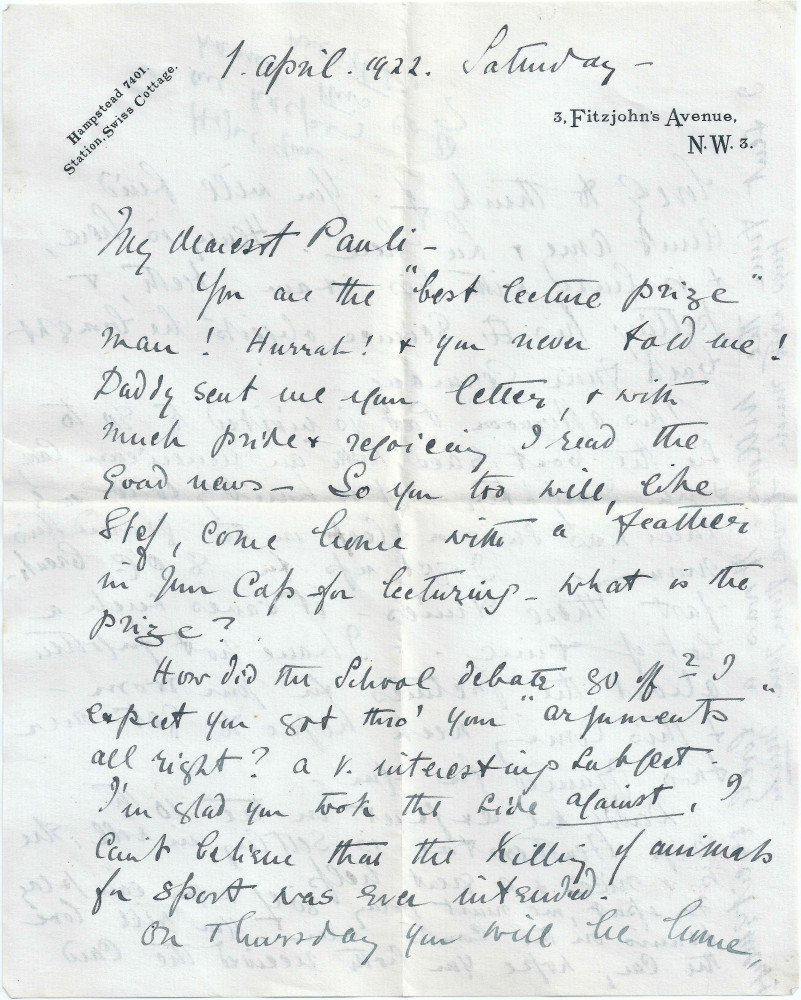 1. April. 1922. Saturday –
Hampstead 7401.
Station, Swiss Cottage.
3, Fitzjohn's Avenue,
N.W. 3.
My dearest Pauli –
You are the "best lecture prize"
man! Hurrah! & you never told me!
Daddy sent me your letter, & with
much pride & rejoicing I read the
good news – So you too will, like
Stef, come home with a feather
in your Cap for lecturing – What is the
prize?
How did the School debate go off? I
expect you got thro' your "arguments"
all right? a v. interesting subject.
I'm glad you took the side against, I
Can't believe that the killing of animals
for sport was ever intended.
On Thursday you will be home,